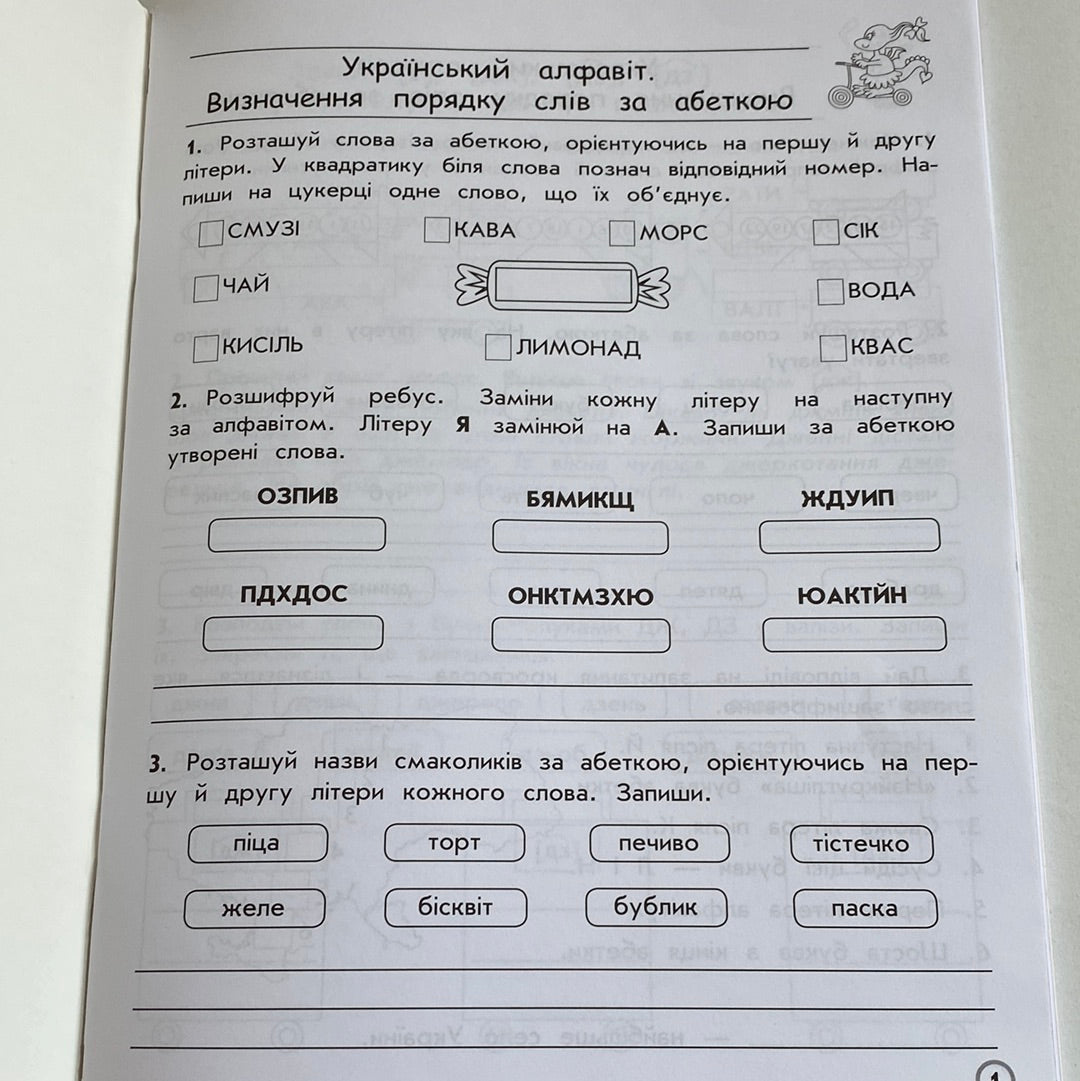 Український алфавіт.
Визначення порядку слів за абеткою
1. Розташуй слова за абеткою, орієнтуючись на першу й другу
літери. У квадратику біля слова познач відповідний номер. На-
пиши на цукерці одне слово, що їх об’єднує.
СМУЗІ КАВА МОРС СІК
ЧАЙ ВОДА
КИСІЛЬ ЛИМОНАД КВАС
2. Розшифруй ребус. Заміни кожну літеру на наступну
за алфавітом. Літеру Я замінюй на А. Запиши за абеткою
утворені слова.
ОЗПИВ БЯМИКЩ ЖДУИП
ПДХДОС ОНКТМЗХЮ ЮАКТЙН
3. Розташуй назви смаколиків за абеткою, орієнтуючись на пер-
шу й другу літери кожного слова. Запиши.
піца торт печиво тістечко
желе бісквіт бублик паска